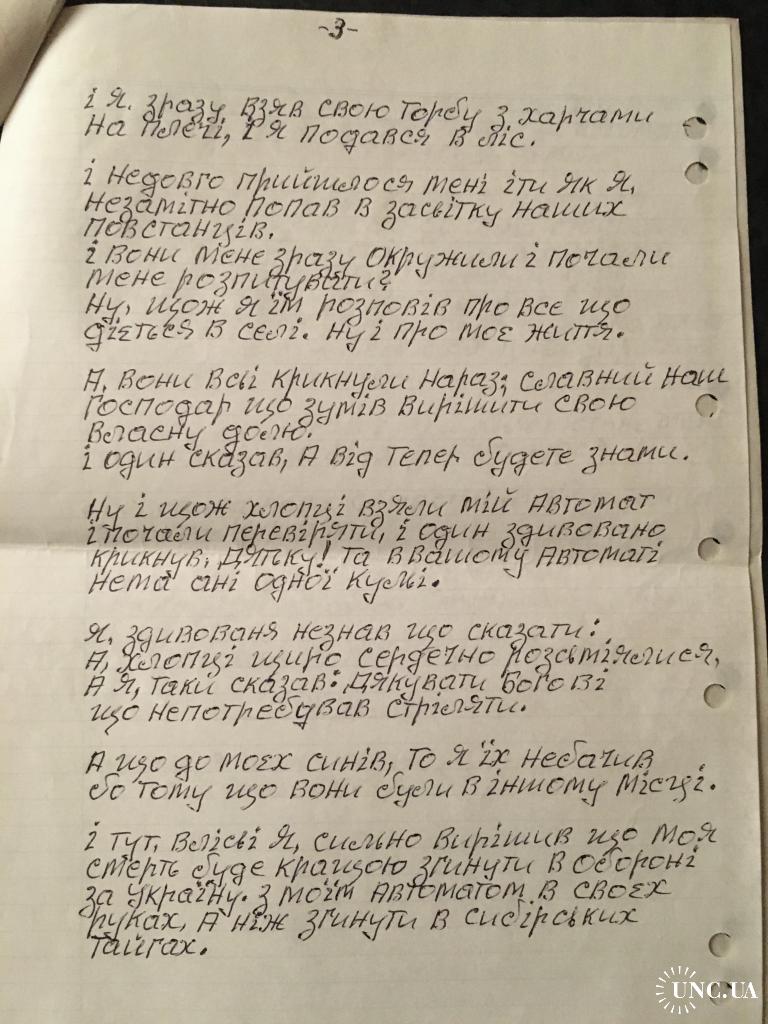 -3-
і Я. зразу, взяв свою торбу з харчами
на плечі, і я подався в ліс.
і недовго прийшлося мені іти як я,
незамітно попав в засвітку наших
повстанців.
і вони мене зразу окружили і почали
мене розпитувати?
Ну, щож я їм розповів про все що
діється в селі. ну і про моє життя.
А, вони всі крикнули нараз; славний наш
господар що зумів вирішити свою
власну долю.
і один сказав, А від тепер будете з нами.
Ну і щож хлопці взяли мій автомат
і почали перевіряти, і один здивовано
крикнув, Дятку! та в вашому автоматі
нема ані одної кулі.
Я, здивованя незнав що сказати:
А, хлопці щиро сердечно розсьміялися,
А я, таки сказав: Дякувати Богові
що непотребував стріляти.
А що до моєх синів, то я їх небачив
бо тому що вони були в іншому місці.
і тут, влісьві Я, сильно вирішив що моя
смерть буде кращою згинути в обороні
за Україну. з моїм автоматом в своєх
руках, А ніж згинути в сибірських
тайгах.
UNC.UA